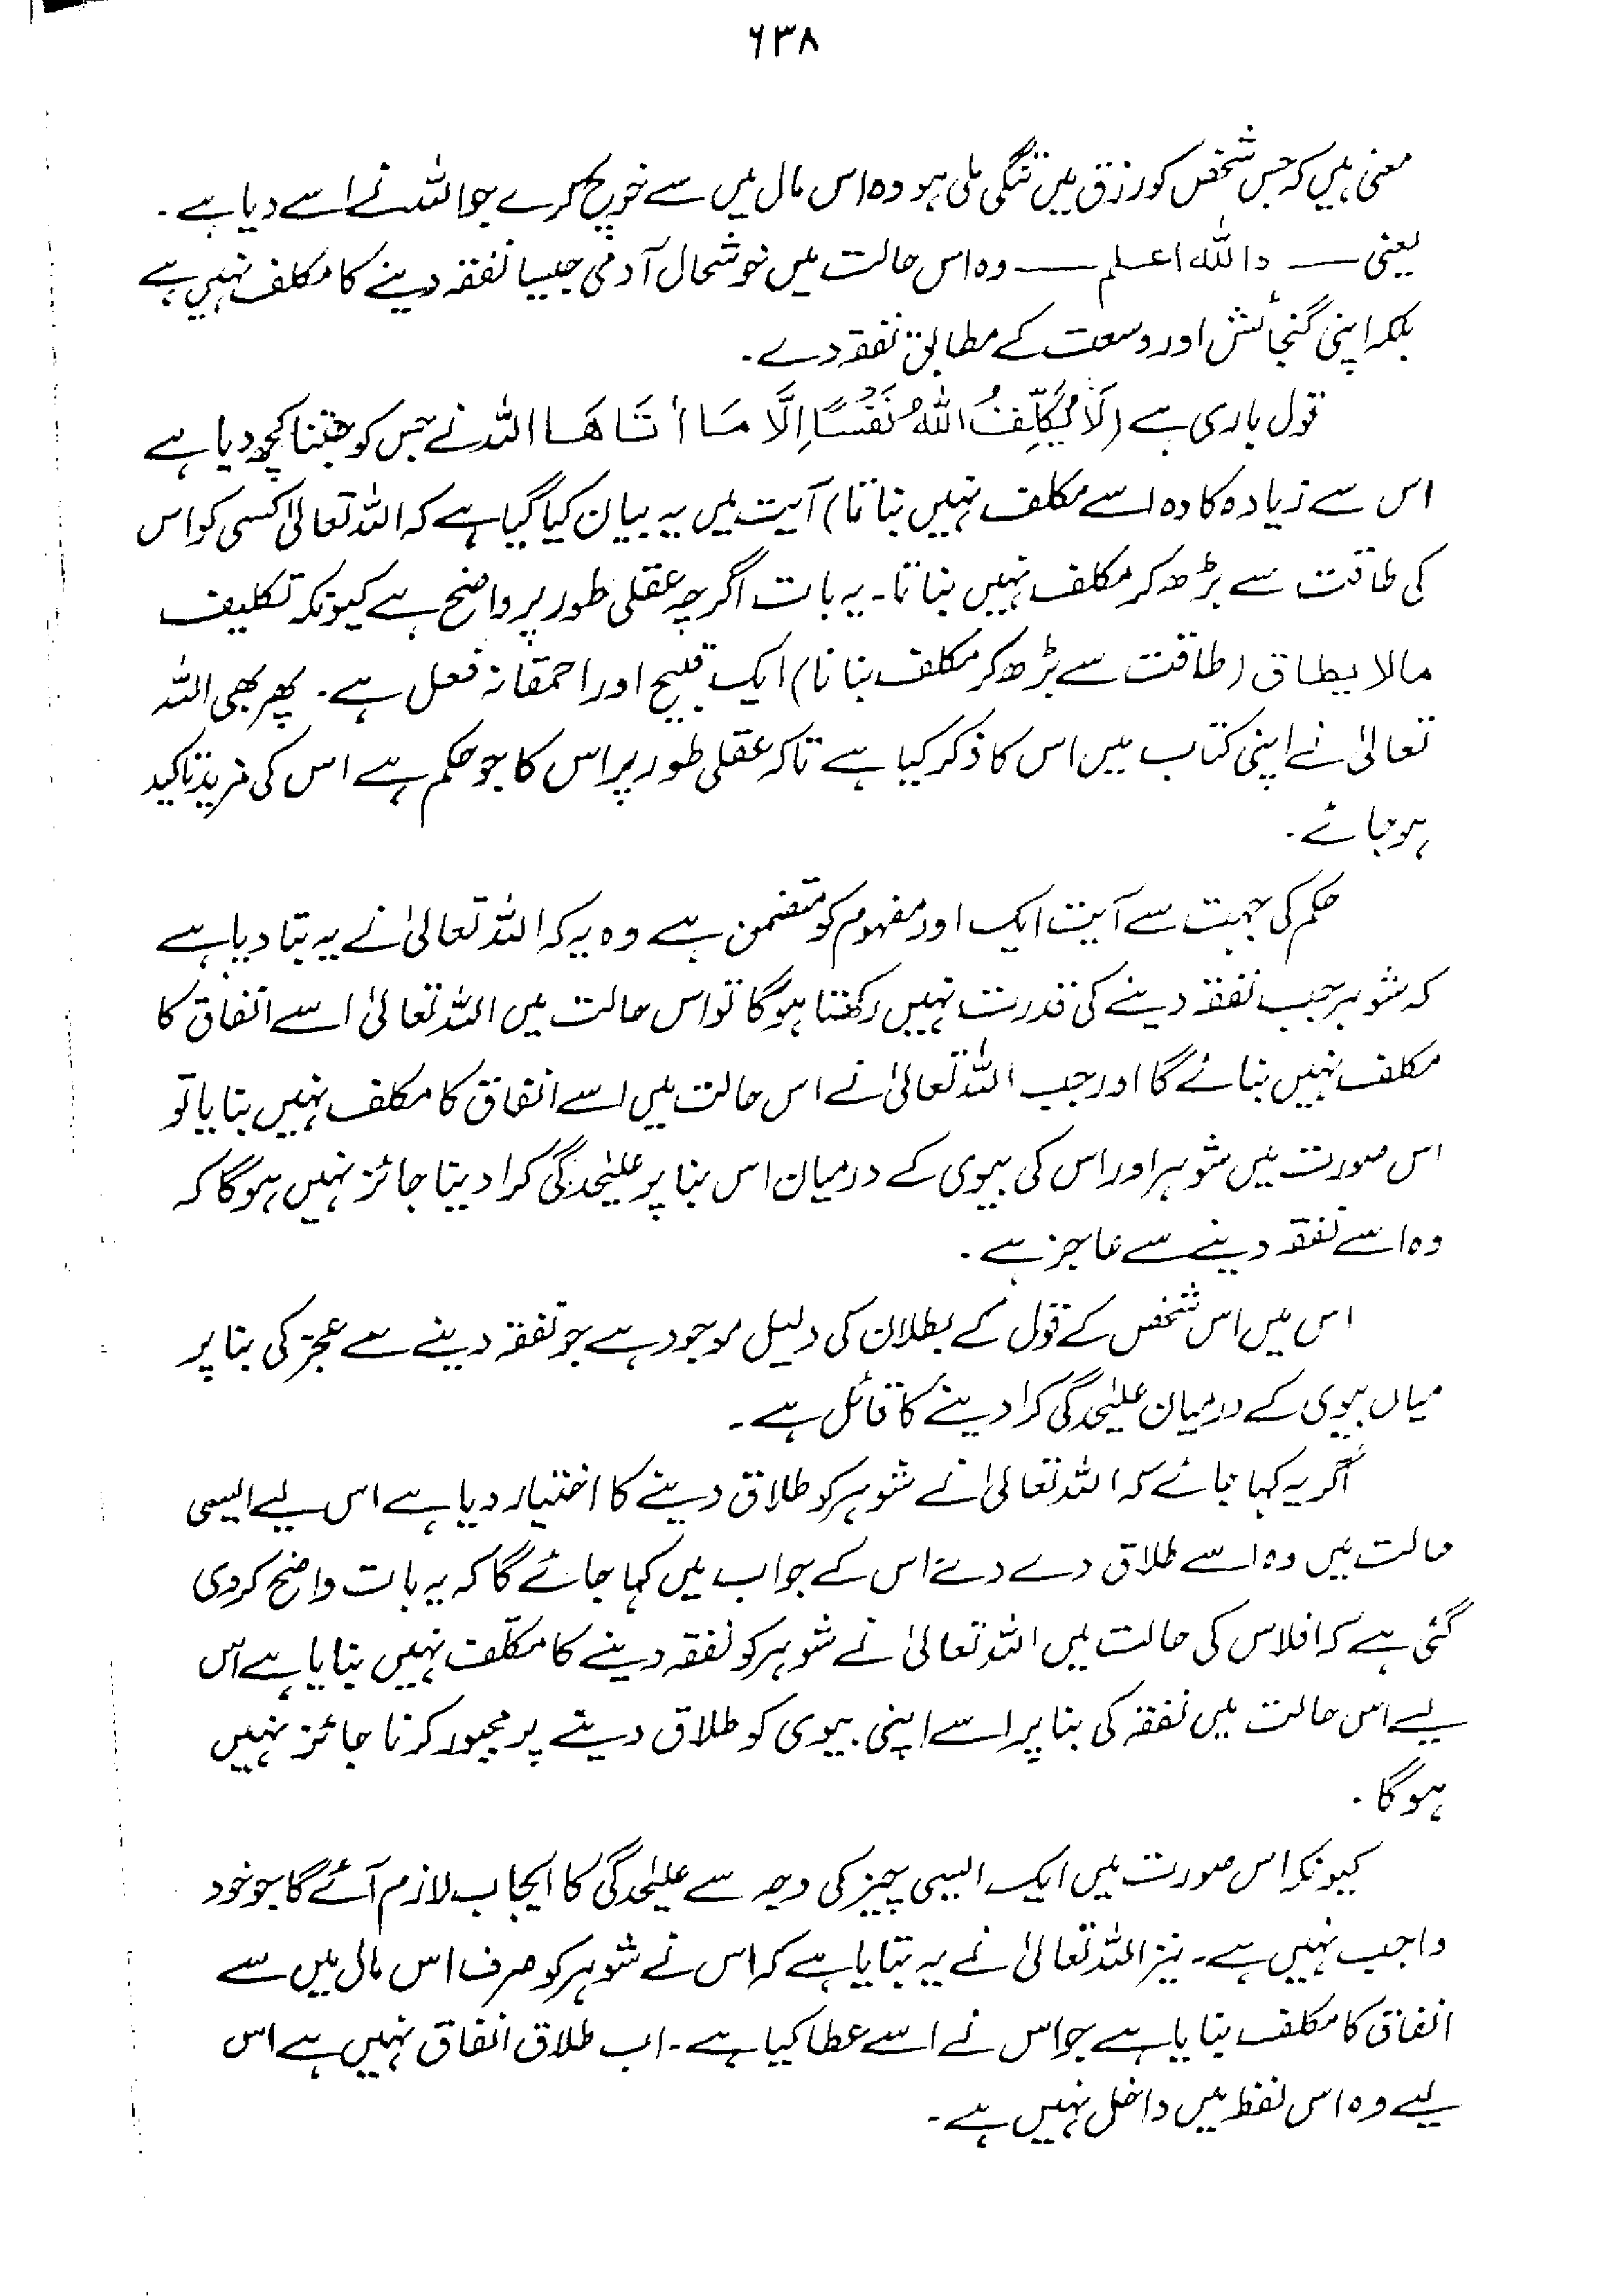 ۶۳۸
معنی ہیں کہ جس شخص کو رزق میں تنگی ملی ہو وہ اس مال میں سے خرچ کرے جو اللہ نے اسے دیا ہے۔
یعنی — واللہ اعلم — وہ اس حالت میں خوشحال آدمی جیسا نفقہ دینے کا مکلف نہیں ہے
بلکہ اپنی گنجائش اور وسعت کے مطابق نفقہ دے۔
قول باری ہے (لَا یُکَلِّفُ اللّٰہُ نَفْسًا اِلَّا مَا اٰتَاھَا اللہ نے جس کو جتنا کچھ دیا ہے
اس سے زیادہ کا وہ اسے مکلف نہیں بناتا) آیت میں یہ بیان کیا گیا ہے کہ اللہ تعالیٰ کسی کو اس
کی طاقت سے بڑھ کر مکلف نہیں بناتا۔ یہ بات اگرچہ عقلی طور پر واضح ہے کیونکہ تکلیف
مالا یطاق (طاقت سے بڑھ کر مکلف بنانا) ایک قبیح اور احمقانہ فعل ہے۔ پھر بھی اللہ
تعالیٰ نے اپنی کتاب میں اس کا ذکر کیا ہے تاکہ عقلی طور پر اس کا جو حکم ہے اس کی مزید تاکید
ہو جائے۔
حکم کی جہت سے آیت ایک اور مفہوم کو متضمن ہے وہ یہ کہ اللہ تعالیٰ نے یہ بتا دیا ہے
کہ شوہر جب نفقہ دینے کی قدرت نہیں رکھتا ہوگا تو اس حالت میں اللہ تعالیٰ اسے انفاق کا
مکلف نہیں بنائے گا اور جب اللہ تعالیٰ نے اس حالت میں اسے انفاق کا مکلف نہیں بنایا تو
اس صورت میں شوہر اور اس کی بیوی کے درمیان اس بنا پر علیٰحدگی کرا دینا جائز نہیں ہوگا کہ
وہ اسے نفقہ دینے سے عاجز ہے۔
اس میں اس شخص کے قول کے بطلان کی دلیل موجود ہے جو نفقہ دینے سے عجز کی بنا پر
میاں بیوی کے درمیان علیٰحدگی کرا دینے کا قائل ہے۔
اگر یہ کہا جائے کہ اللہ تعالیٰ نے شوہر کو طلاق دینے کا اختیار دیا ہے اس لیے ایسی
حالت میں وہ اسے طلاق دے دے، اس کے جواب میں کہا جائے گا کہ یہ بات واضح کر دی
گئی ہے کہ افلاس کی حالت میں اللہ تعالیٰ نے شوہر کو نفقہ دینے کا مکلّف نہیں بنایا ہے اس
لیے اس حالت میں نفقہ کی بنا پر اسے اپنی بیوی کو طلاق دینے پر مجبور کرنا جائز نہیں
ہوگا۔
کیونکہ اس صورت میں ایک ایسی چیز کی وجہ سے علیٰحدگی کا ایجاب لازم آئے گا جو خود
واجب نہیں ہے۔ نیز اللہ تعالیٰ نے یہ بتایا ہے کہ اس نے شوہر کو صرف اس مال میں سے
انفاق کا مکلف بنایا ہے جو اس نے اسے عطا کیا ہے۔ اب طلاق انفاق نہیں ہے اس
لیے وہ اس لفظ میں داخل نہیں ہے۔